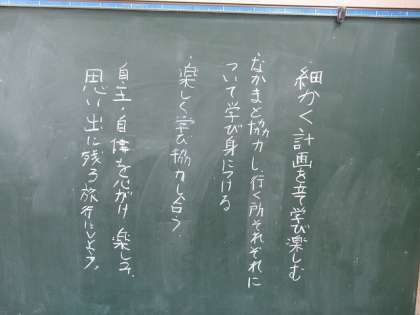 ・細かく計画を立て学び楽しむ
・なかまと協力し、行く所それぞれに
ついて学び身につける
・楽しく学び協力し合う。
自主・自律を心がけ楽しみ、
思い出に残る旅行にしよう。